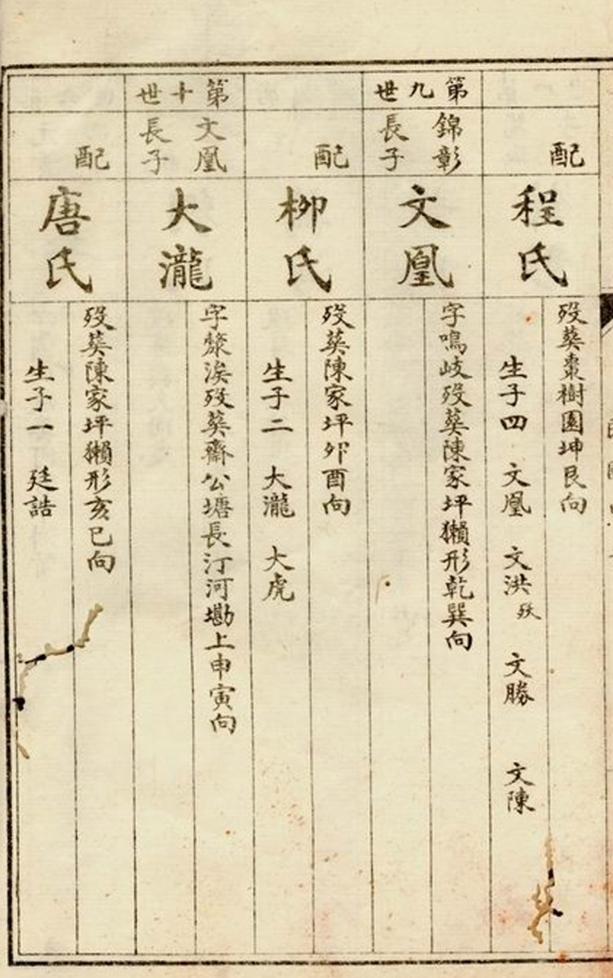 配
程氏
歿葬棗樹園坤艮向
生子四 文凰 文洪歿 文勝 文陳
第九世
錦彰
長子
文凰
字鳴岐歿葬陳家坪獺形乾巽向
配
柳氏
歿葬陳家坪卯酉向
生子二 大瀧 大虎
第十世
文凰
長子
大瀧
字漦涘歿葬齋公塘長汀河墈上申寅向
配
唐氏
歿葬陳家坪獺形亥巳向
生子一 廷誥